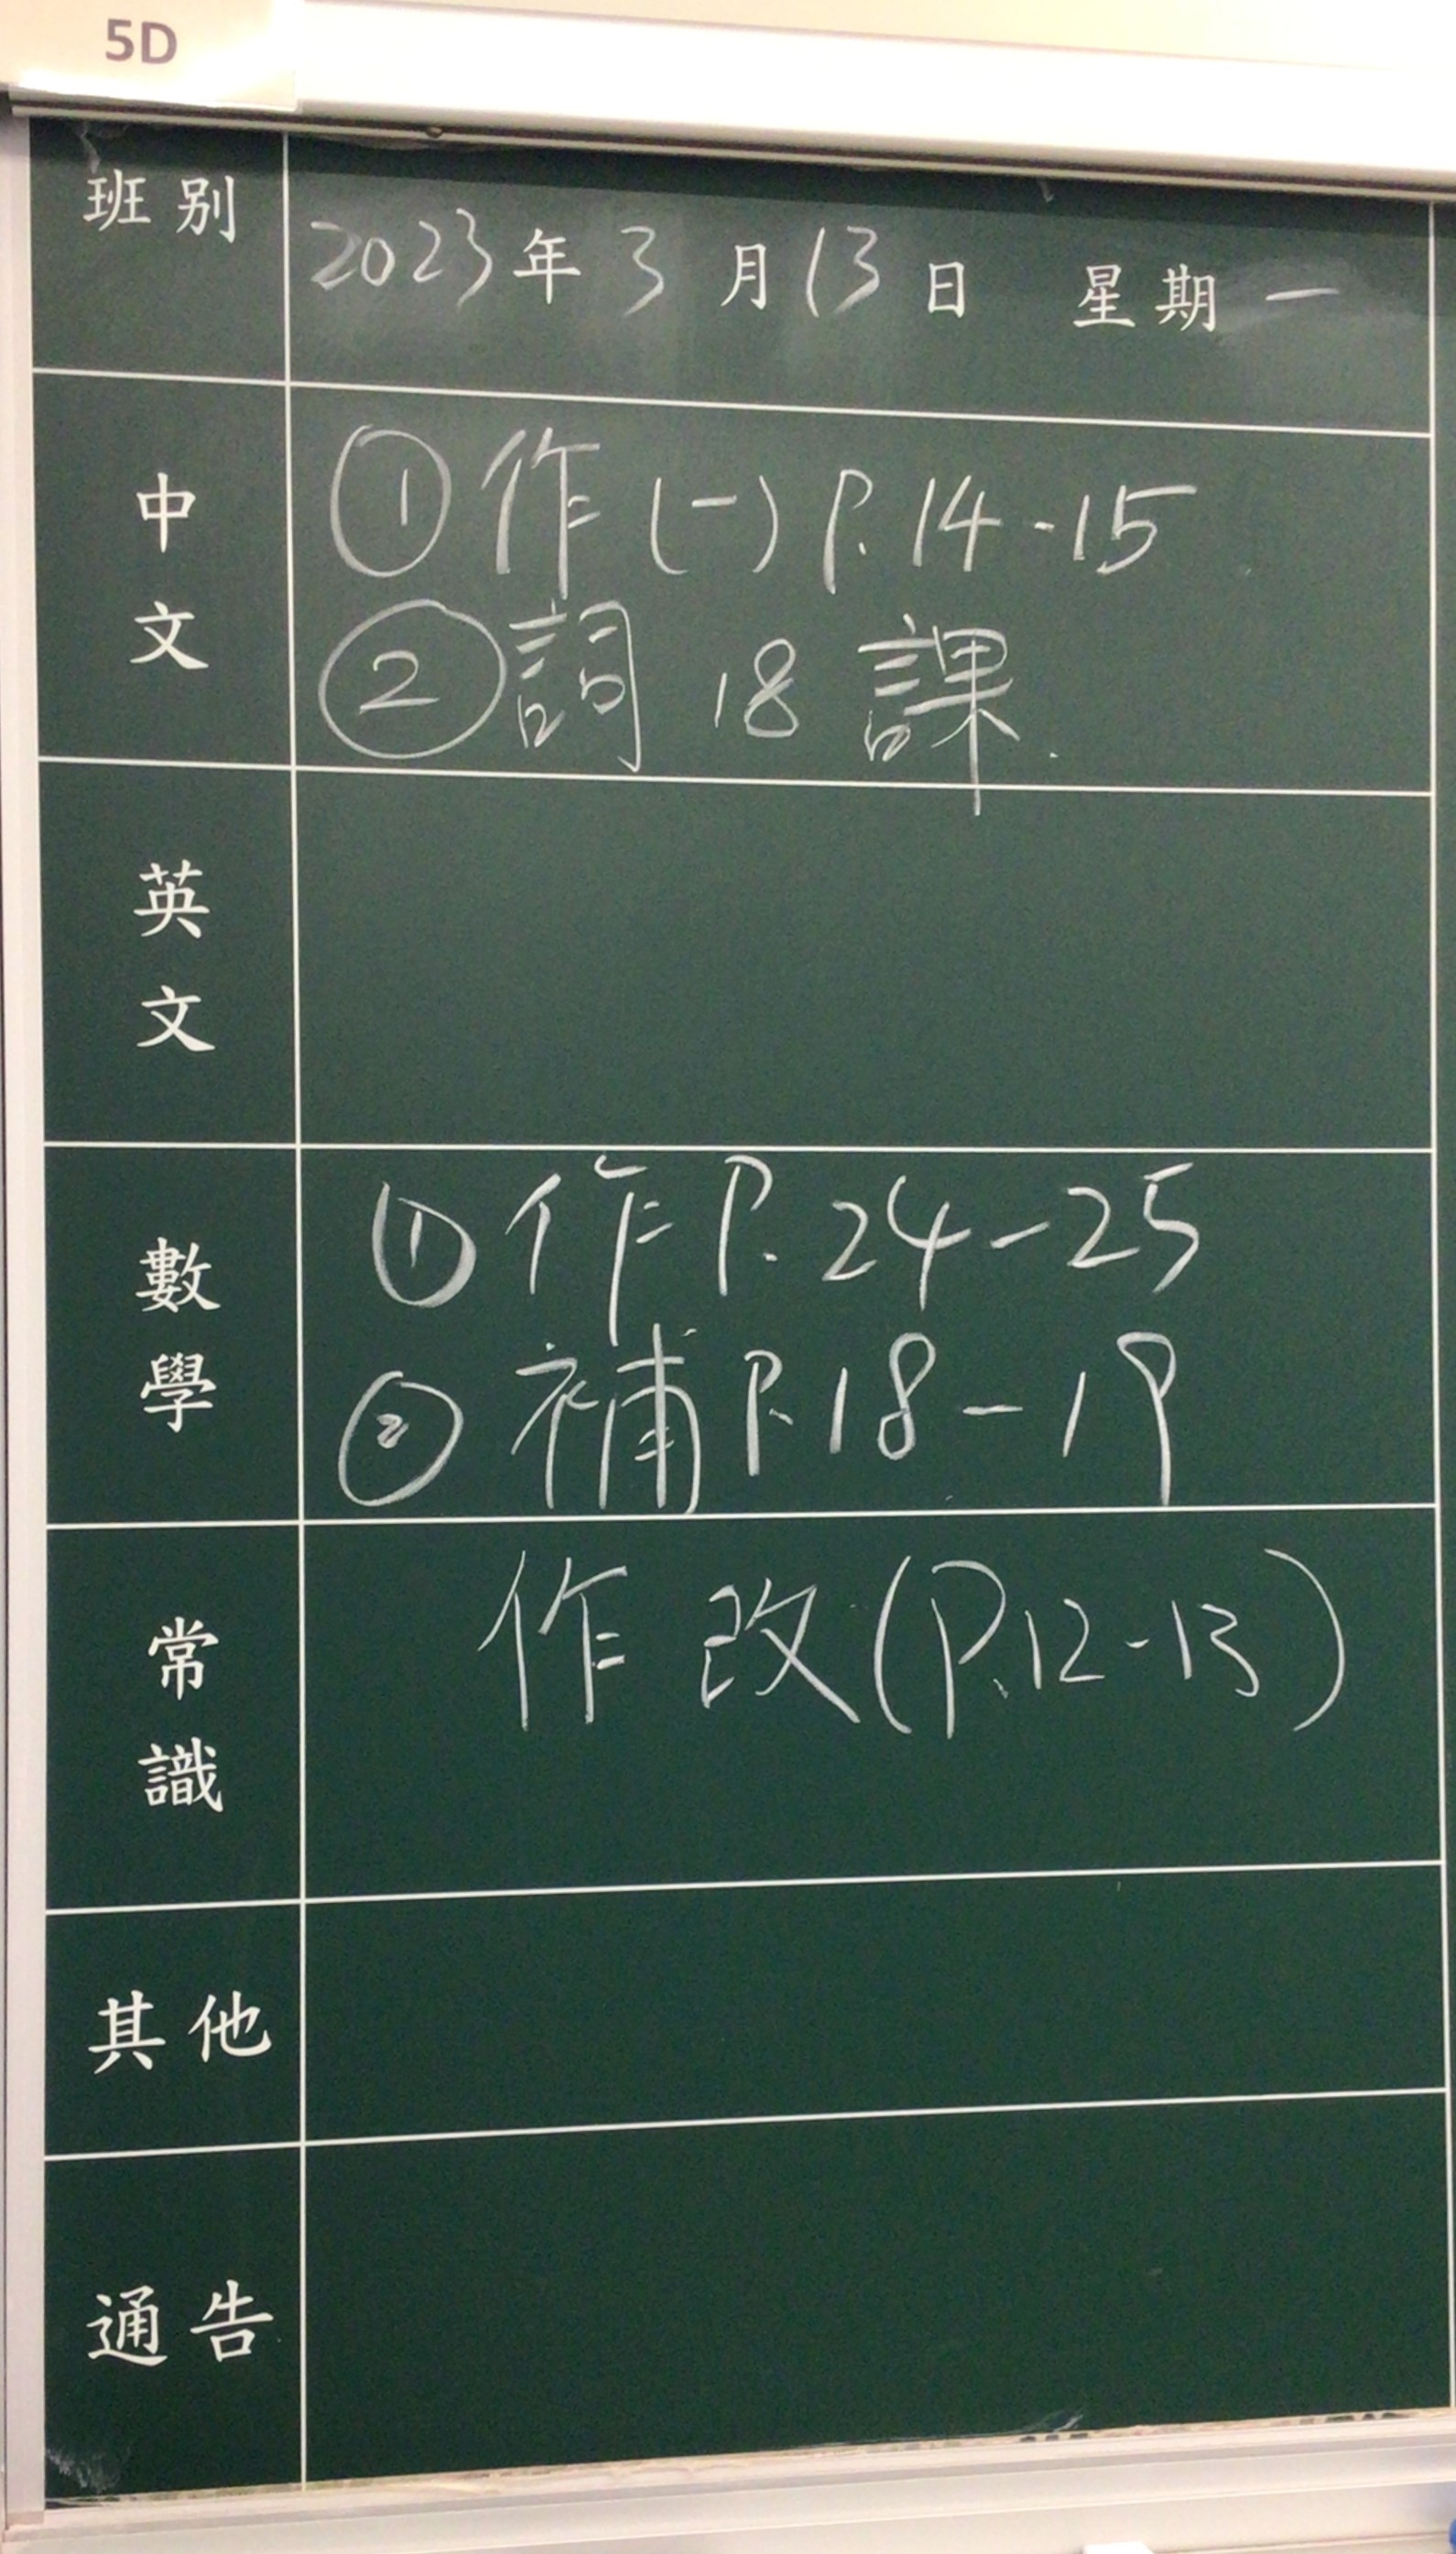 5D
班別
2023年3月13日 星期一
中文
①作(一)P.14-15
②詞 18 課.
英文
數學
①作P.24-25
②補P.18-19
常識
作 改(P.12-13)
其他
通告